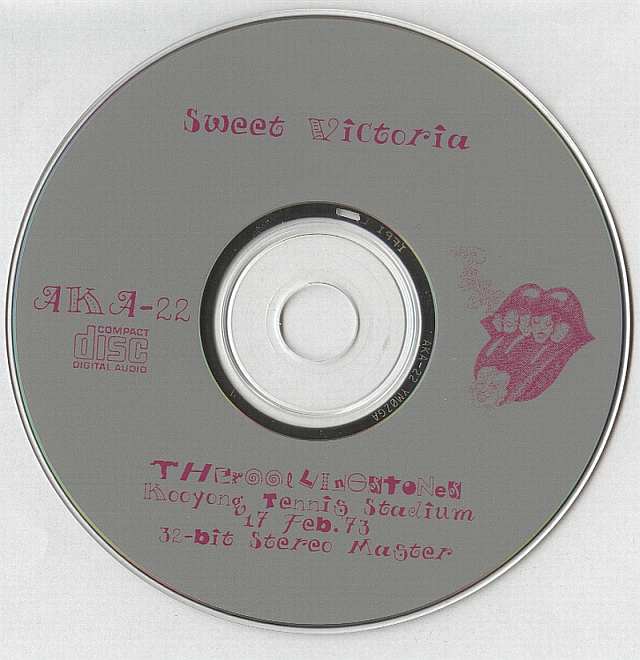 Sweet Victoria
AKA-22
COMPACT
disc
DIGITAL AUDIO
AKA-22 YM0ZGA
THErOOlLInGSToNes
Kooyong Tennis Stadium
17 Feb.73
32-bit Stereo Master